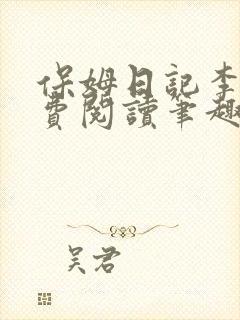 保姆日記李
費閱讀筆趣
吴君